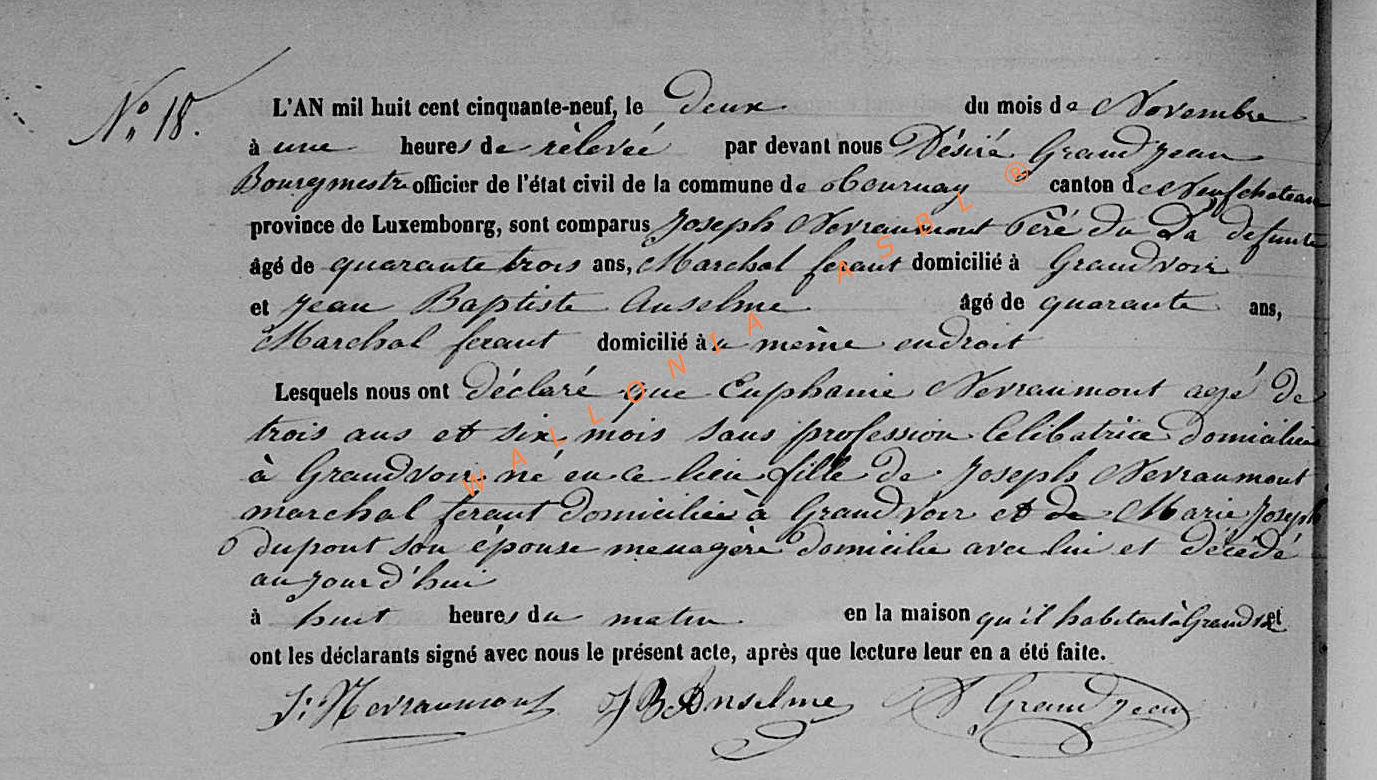 No. 18.
L'AN mil huit cent cinquante-neuf, le Deux du mois de Novembre
à une heures de rèlevéé par devant nous Désiré Grandjean
Bourgmestre officier de l'état civil de la commune de tournay canton de Neufchateau
province de Luxembonrg, sont comparus Joseph Nevraumont Péré du La defunte
âgé de quarante trois ans, Marchal feraut domicilié à Grandvoir
et Jean Baptiste Anselme âgé de quarante ans,
Marchal feraut domicilié à u même endroit
Lesquels nous ont déclaré que Euphanie Nevraumont agé de
trois ans et six mois sans profession Celibatriïe domicilieé
à Grandvoir né en ce lieu fille de Joseph Nevraumont
marchal feraut domicilieé à Grandvoir et de Marie Joseph
dupont son épouse menagère domicilie avec lui et décédé
aujourd'hui
à huit heures du matin en la maison qu'il habitent à Grandvoir et
ont les déclarants signé avec nous le présent acte, après que lecture leur en a été faite.
J. Nevraumont JB Anselme D Grandjean
WALLONIA ASBL ®